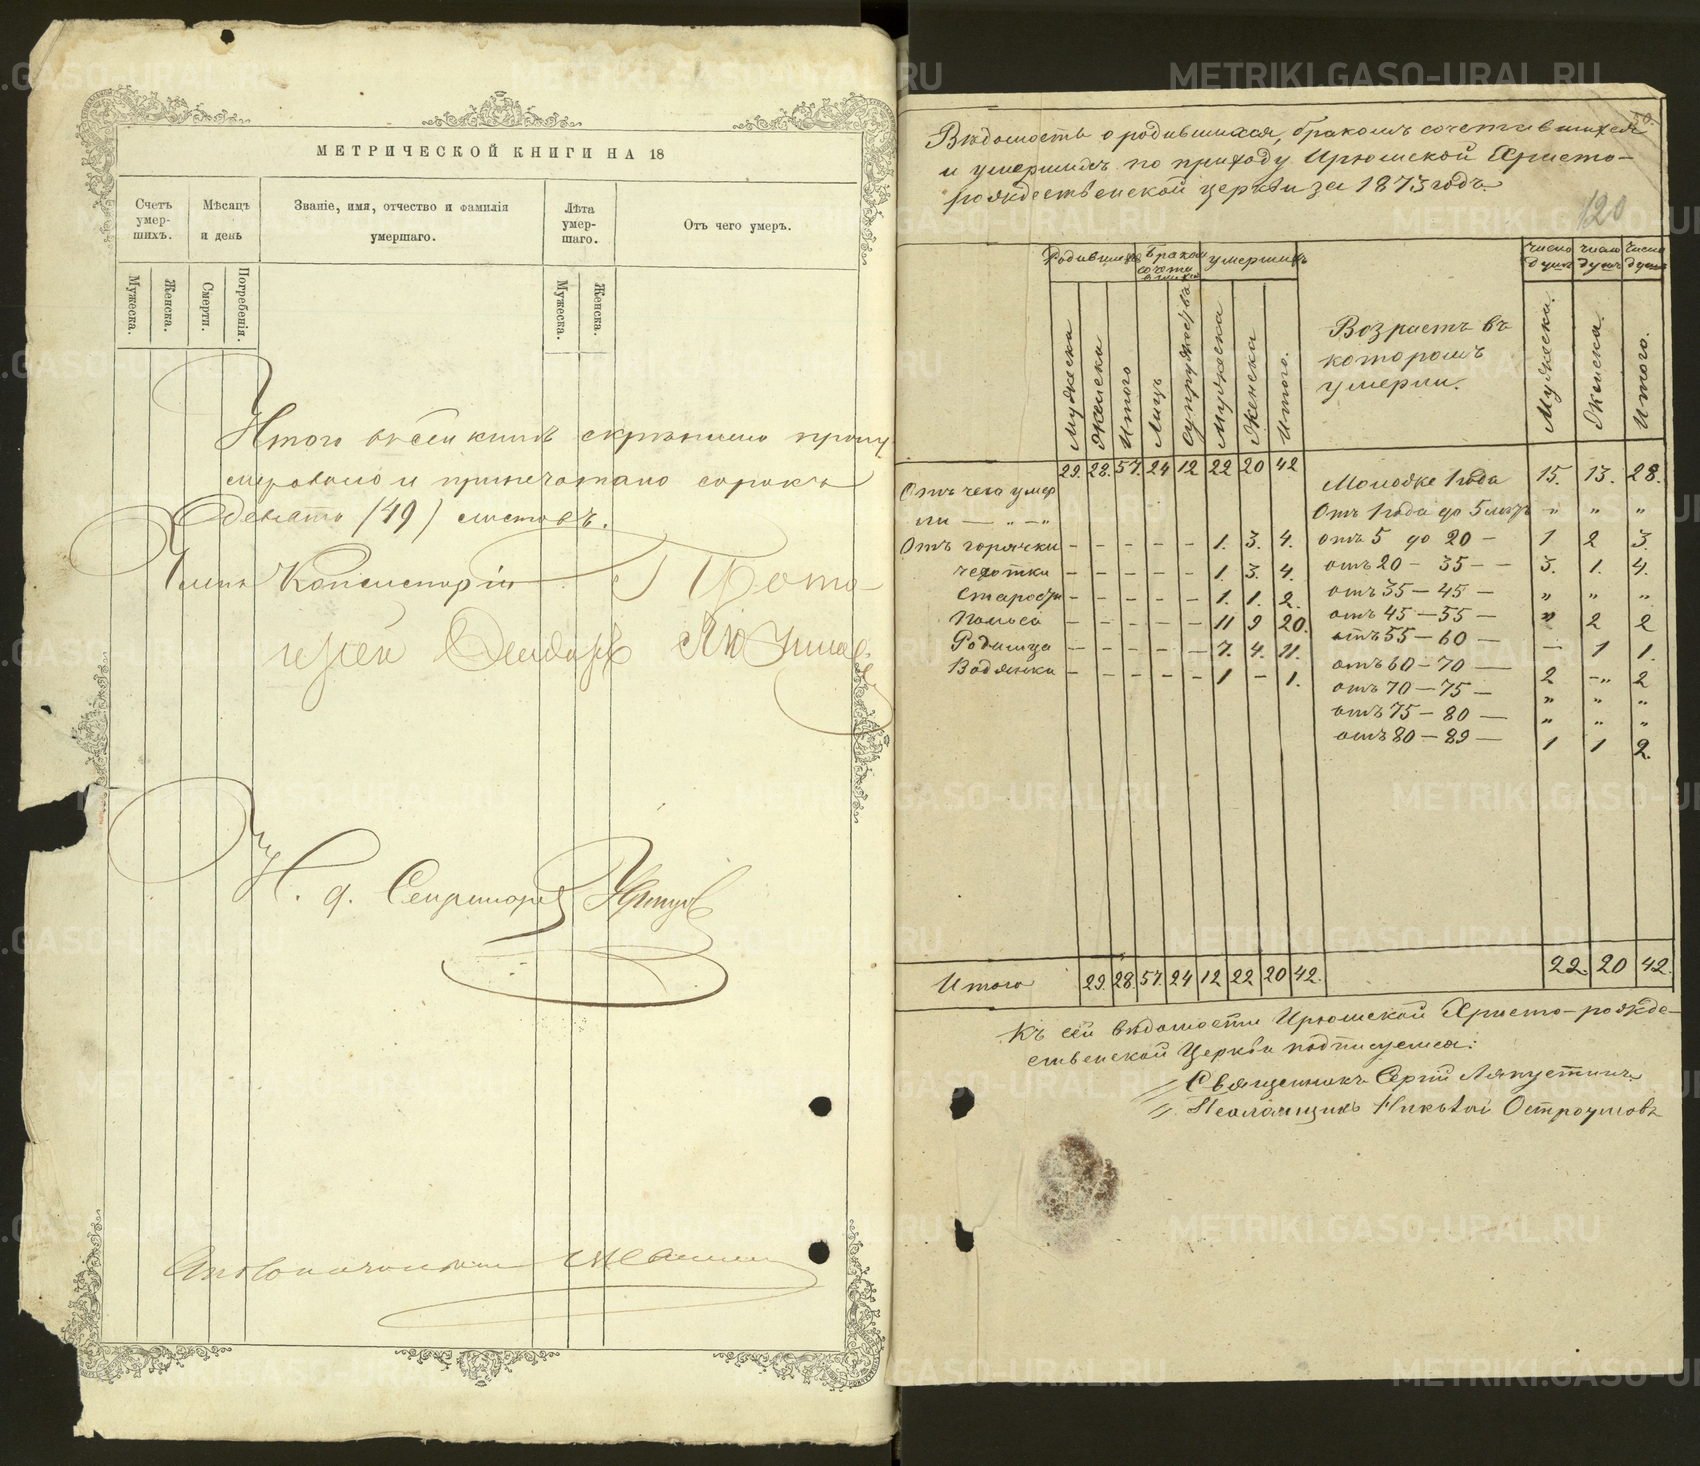 МЕТРИЧЕСКОЙ КНИГИ НА 18
Счетъ умер-шихъ.
Мѣсяцъ и день
Званіе, имя, отчество и фамилія умершаго.
Лѣта умер-шаго.
Отъ чего умеръ.
Мужеска.
Женска.
Смерти.
Погребенія.
Мужеска.
Женска.
Итого въ сей книгѣ скрѣплено прону
меровано и припечатано сорокъ
девять (49) листовъ.
Членъ Консисторіи Прото
іерей
И. д. Секретаря
Вѣдомость о родившихся, бракомъ сочетавшихся
и умершихъ по приходу Ирюмской Христо-
рождественской церкви за 1873 годъ.
50.
120
Родившихъ
Браком сочета
умершихъ
число душъ
число душъ
число душъ
Мужеска
Женска
Итого
Лицъ
Супружествъ
Мужеска
Женска
Итого.
Возрастъ въ
которомъ
умерли.
Мужеска.
Женска.
Итого.
29. 28. 57. 24 12 22 20 42 Моложе 1 года 15. 13. 28.
Отъ чего умер
ли — „ — „ Отъ 1 года до 5 лѣтъ „ „ „
Отъ горячки - - - - - 1. 3. 4. отъ 5 до 20 - 1 2 3.
чехотки - - - - - 1. 3. 4. отъ 20 - 35 - - 3. 1. 4.
Старости - - - - - 1. 1. 2. отъ 35 - 45 - „ „ „
Поноса - - - - - 11 9 20. отъ 45 - 55 - „ 2 2
Родимца - - - - - 7. 4. 11. отъ 55 - 60 - — 1 1.
Водянки - - - - - 1 - 1. отъ 60 - 70 — 2 - „ 2
отъ 70 - 75 - „ „ „
отъ 75 - 80 — „ „ „
отъ 80 - 89 — 1 1 2.
Итого 29. 28. 57. 24 12 22 20 42. 22. 20 42.
Къ сей вѣдомости Ирюмской Христо-рожде-
ственской Церкви подписуемся:
Священникъ Сергій Ляпустинъ
Псаломщикъ Остроумовъ
METRIKI.GASO-URAL.RU